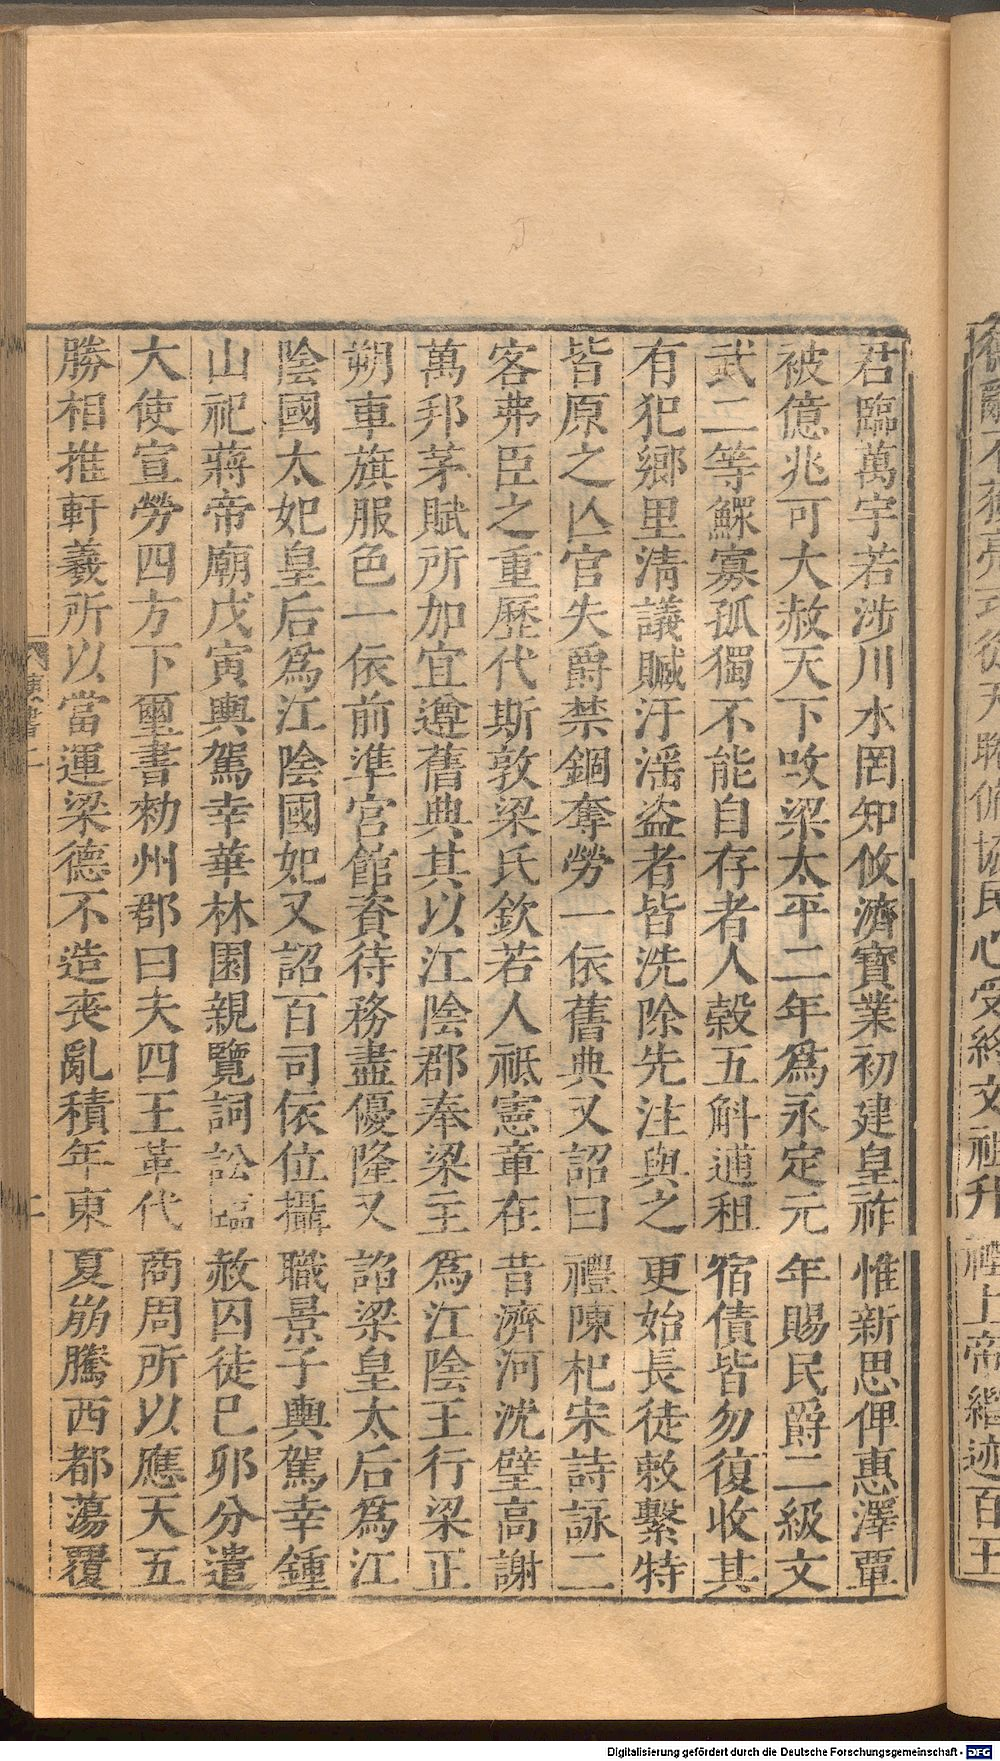 君臨萬宇若涉川水罔知攸濟寶業初建皇祚惟新思俾惠澤覃
被億兆可大赦天下改梁太平二年爲永定元年賜民爵二級文
武二等鰥寡孤獨不能自存者人穀五斛逋租宿債皆勿復收其
有犯鄉里清議贓汙滛盗者皆洗除先注與之更始長徒敕繫特
皆原之亾官失爵禁錮奪勞一依舊典又詔曰禮陳杞宋詩詠二
客弗臣之重歷代斯敦梁氏欽若人祗憲章在昔濟河沈璧高謝
萬邦茅賦所加宜遵舊典其以江陰郡奉梁主爲江陰王行梁正
朔車旗服色一依前準宮館資待務盡優隆又詔梁皇太后爲江
陰國太妃皇后爲江陰國妃又詔百司依位攝職景子輿駕幸鍾
山祀蔣帝廟戊寅輿駕幸華林園親覽詞訟臨赦囚徒巳卯分遣
大使宣勞四方下璽書勑州郡曰夫四王革代商周所以應天五
勝相推軒羲所以當運梁德不造喪亂積年東夏崩騰西都蕩覆
Digitalisierung gefördert durch die Deutsche Forschungsgemeinschaft - DFG